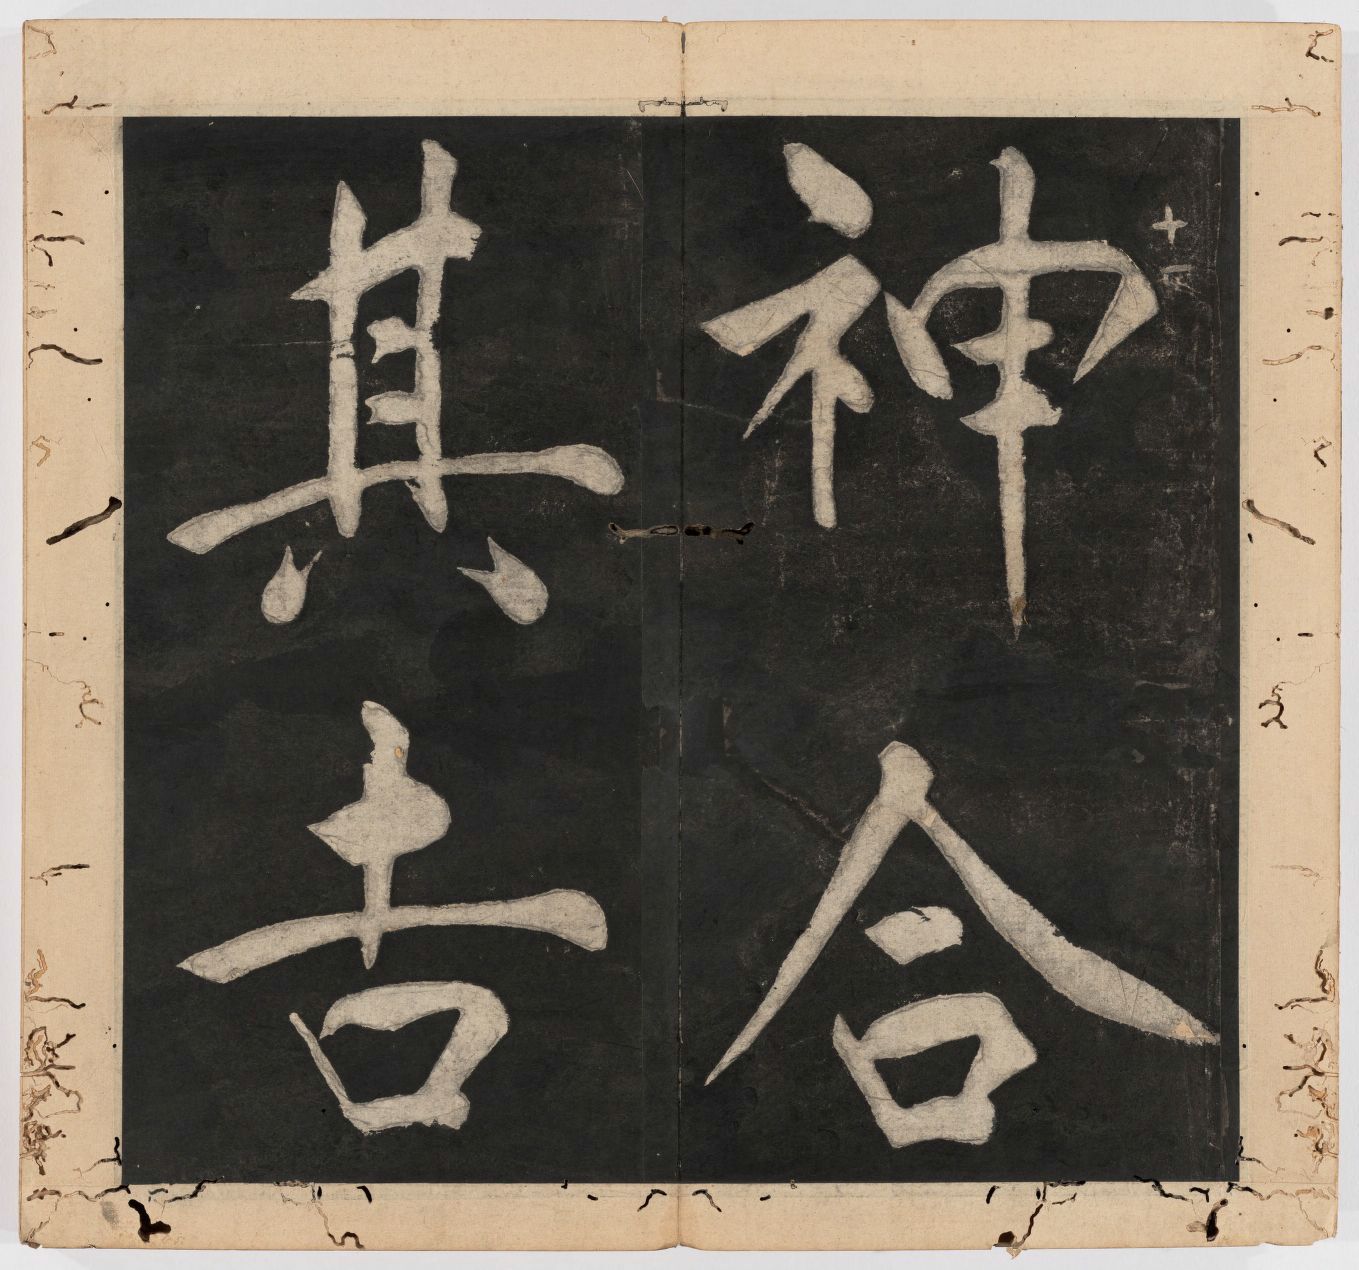 十
神合
其吉